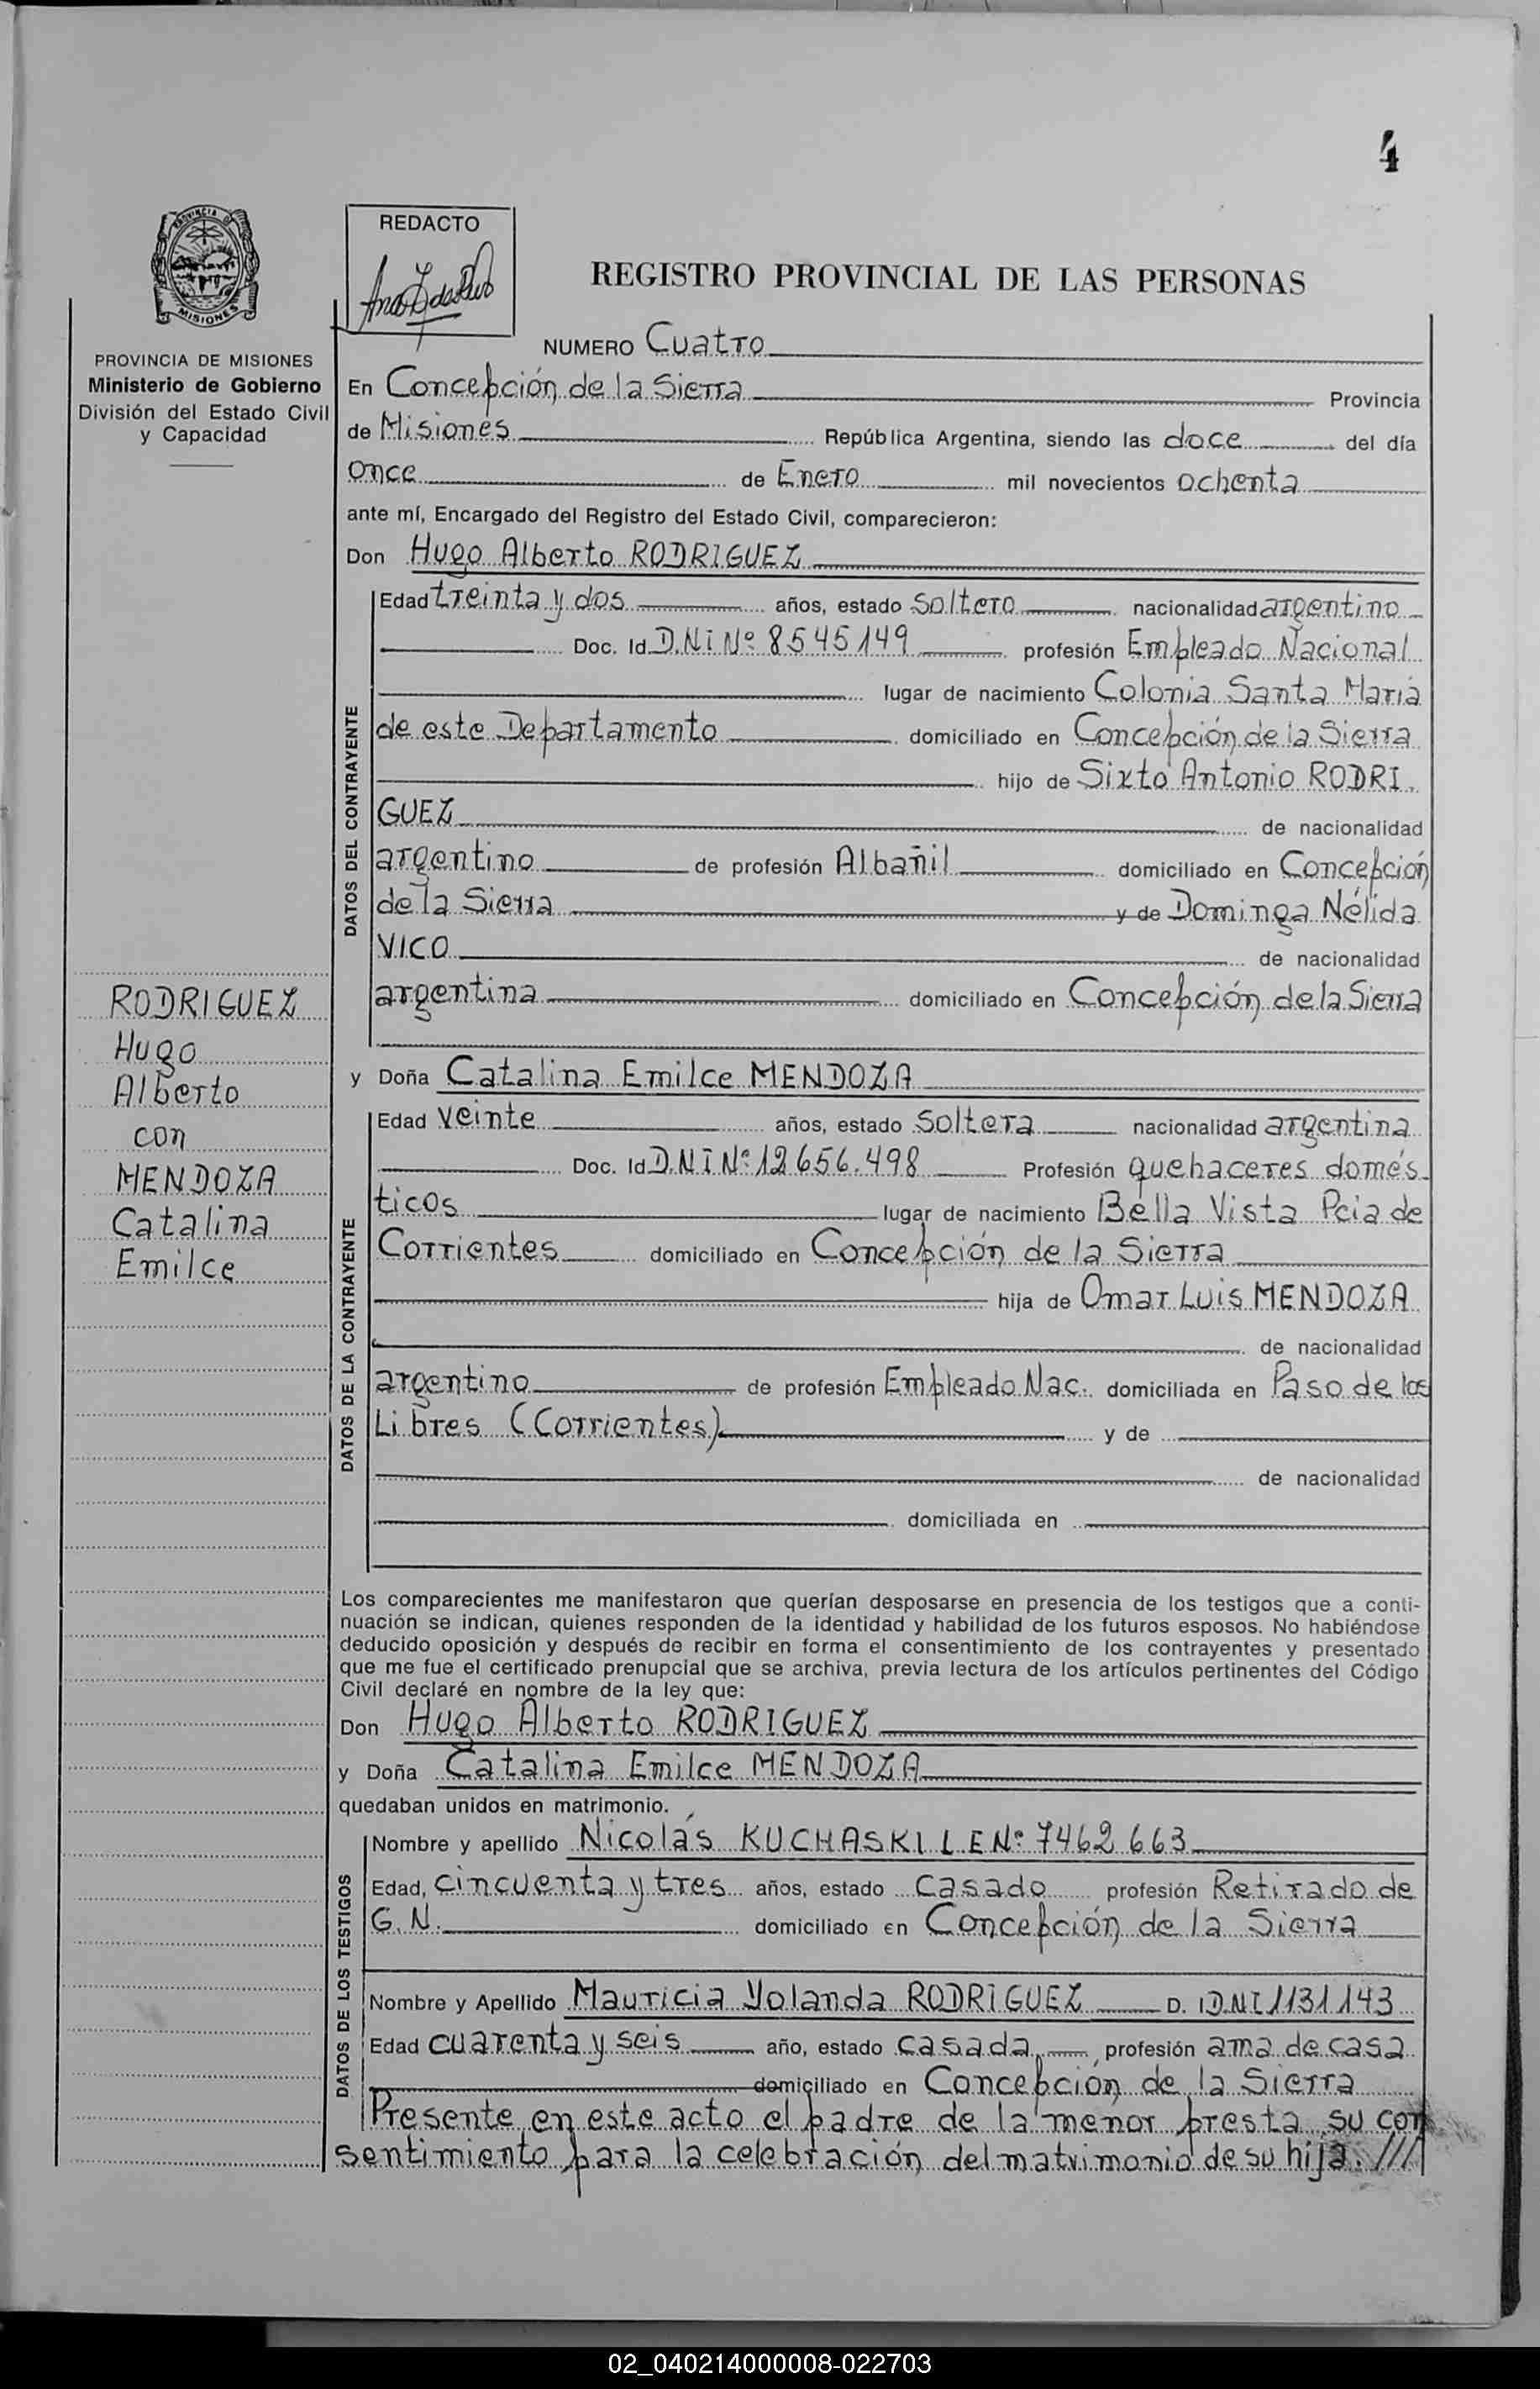 4
PROVINCIA DE
MISIONES
REDACTO
REGISTRO PROVINCIAL DE LAS PERSONAS
NUMERO Cuatro
PROVINCIA DE MISIONES
Ministerio de Gobierno
División del Estado Civil
y Capacidad
En Concepción de la Sierra Provincia
de Misiones República Argentina, siendo las doce del día
once de Enero mil novecientos ochenta
ante mí, Encargado del Registro del Estado Civil, comparecieron:
Don Hugo Alberto RODRIGUEZ
DATOS DEL CONTRAYENTE
Edad treinta y dos años, estado soltero nacionalidad argentino
Doc. Id. D.N.I Nº 8545149 profesión Empleado Nacional
lugar de nacimiento Colonia Santa María
de este Departamento domiciliado en Concepción de la Sierra
hijo de Sixto Antonio RODRI.
GUEZ de nacionalidad
argentino de profesión Albañil domiciliado en Concepción
de la Sierra y de Dominga Nélida
VICO de nacionalidad
argentina domiciliado en Concepción de la Sierra
RODRIGUEZ
Hugo
Alberto
con
MENDOZA
Catalina
Emilce
y Doña Catalina Emilce MENDOZA
DATOS DE LA CONTRAYENTE
Edad veinte años, estado soltera nacionalidad argentina
Doc. Id D.N.I Nº 12656.498 Profesión quehaceres domés-
ticos lugar de nacimiento Bella Vista Pcia de
Corrientes domiciliado en Concepción de la Sierra
hija de Omar Luis MENDOZA
de nacionalidad
argentino de profesión Empleado Nac. domiciliada en Paso de los
Libres (Corrientes) y de
de nacionalidad
domiciliada en
Los comparecientes me manifestaron que querían desposarse en presencia de los testigos que a conti-
nuación se indican, quienes responden de la identidad y habilidad de los futuros esposos. No habiéndose
deducido oposición y después de recibir en forma el consentimiento de los contrayentes y presentado
que me fue el certificado prenupcial que se archiva, previa lectura de los artículos pertinentes del Código
Civil declaré en nombre de la ley que:
Don Hugo Alberto RODRIGUEZ
y Doña Catalina Emilce MENDOZA
quedaban unidos en matrimonio.
DATOS DE LOS TESTIGOS
Nombre y apellido Nicolás KUCHASKI L.E Nº 7462663
Edad, cincuenta y tres años, estado casado profesión Retirado de
G.N. domiciliado en Concepción de la Sierra
Nombre y Apellido Mauricia Yolanda RODRIGUEZ D. I D.N.I 1131143
Edad cuarenta y seis año, estado casada, profesión ama de casa
domiciliado en Concepción de la Sierra
Presente en este acto el padre de la menor presta su con
sentimiento para la celebración del matrimonio de su hija. ///
02_040214000008-022703